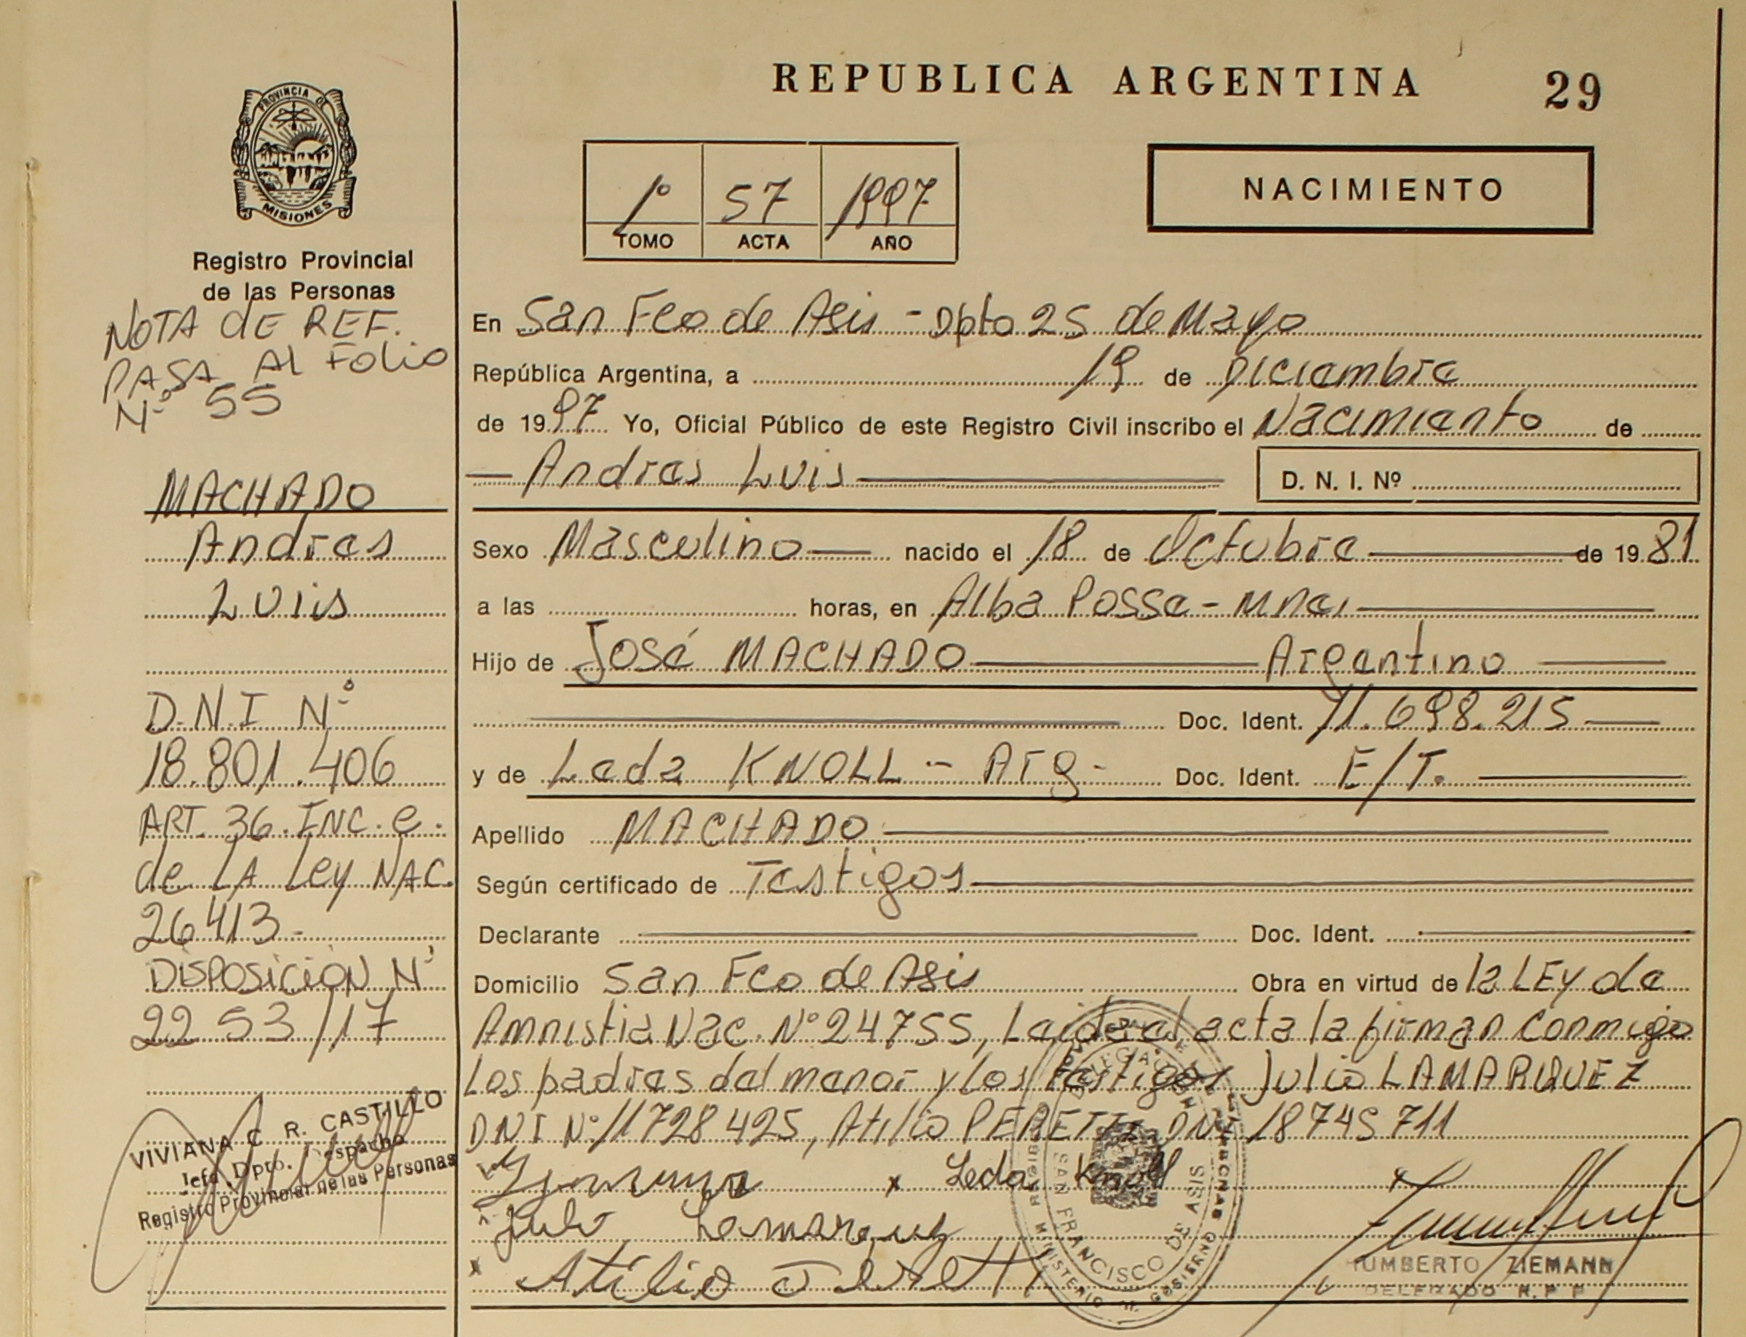 REPUBLICA ARGENTINA
29
PROVINCIA DE
MISIONES
Registro Provincial
de las Personas
NOTA de REF.
PASA Al Folio
Nº 55
MACHADO
Andres
Luis
D.N.I Nº
18.801.406
ART. 36. INC. e.
de LA Ley NAC.
26413-
DISPOSICION Nº
2253/17
VIVIANA C. R. CASTILLO
Jefa Dpto. Despacho
Registro Provincial de las Personas
1º 57 1997
TOMO ACTA AÑO
NACIMIENTO
En San Fco de Asis - Dpto 25 de Mayo
República Argentina, a 19 de Diciembre
de 1997 Yo, Oficial Público de este Registro Civil inscribo el Nacimiento de
Andres Luis D. N. I. Nº
Sexo Masculino nacido el 18 de Octubre de 1981
a las horas, en Alba Posse - Mnes
Hijo de José MACHADO Argentino
Doc. Ident. 71.698.215
y de Leda KNOLL - Arg - Doc. Ident. E/T.
Apellido MACHADO
Según certificado de Testigos
Declarante Doc. Ident.
Domicilio San Fco de Asis Obra en virtud de la LEy de
Amnistia Nac. Nº 24755, Leida el acta la firman conmigo
Los padres del menor y los testigos Julio LAMARQUEZ
DNI Nº 11728425, Atilio PERETTI DNI 18745711
x Leda Knoll
Julio Lamarquez
x Atilio Peretti
SAN FRANCISCO DE ASIS
MINISTERIO DE GOBIERNO
HUMBERTO ZIEMANN
DELEGADO R. P. P.